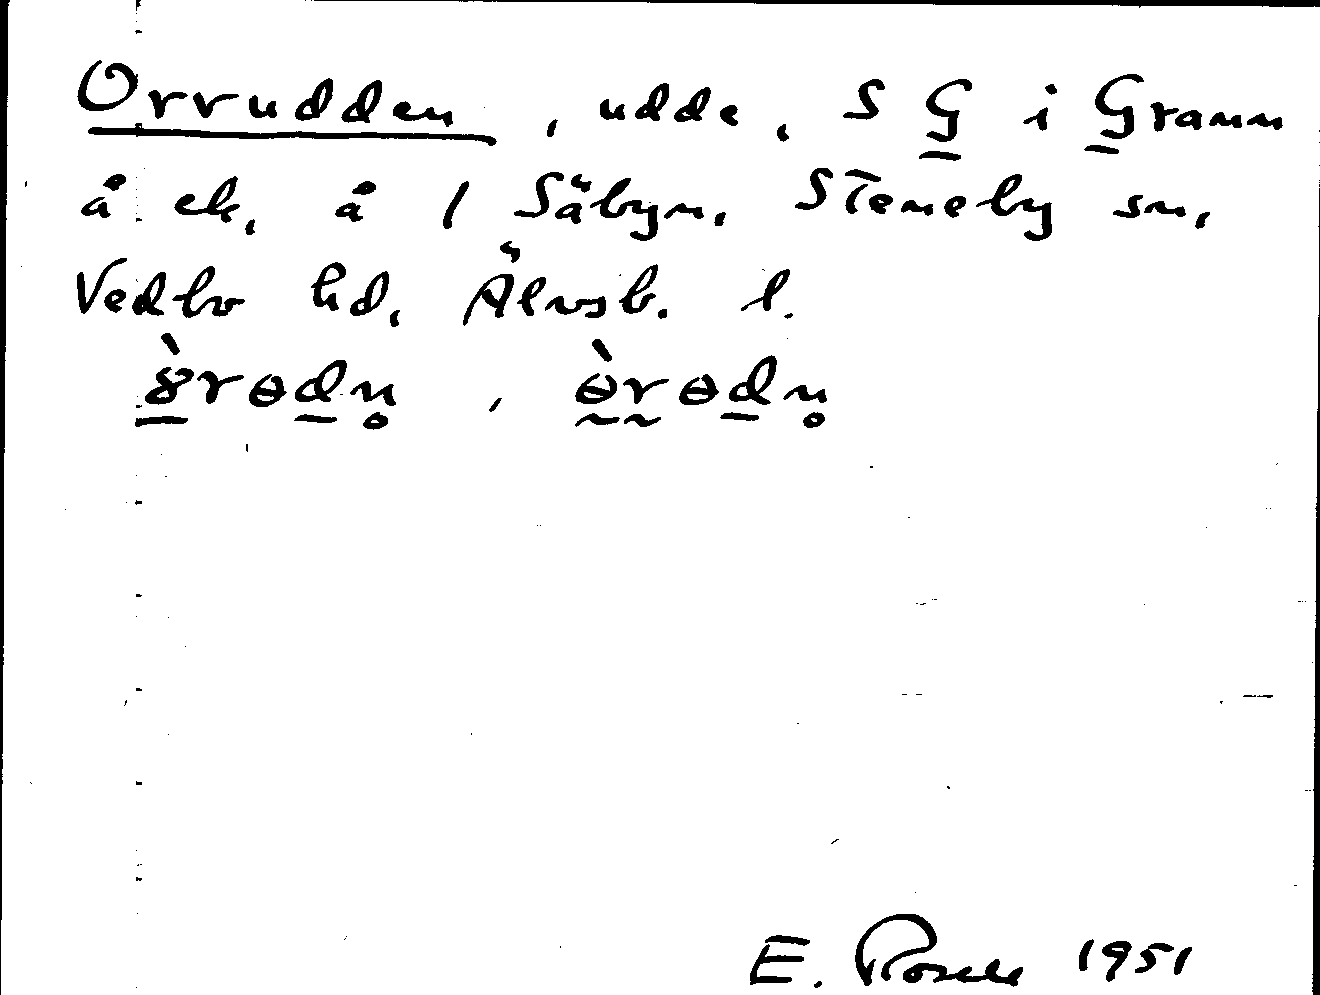 Orrudden, udde, S G i Grann
å ek. å 1 Säbyn. Steneby sn,
Vedbo hd, Älvsb. l.
E. Rosell 1951